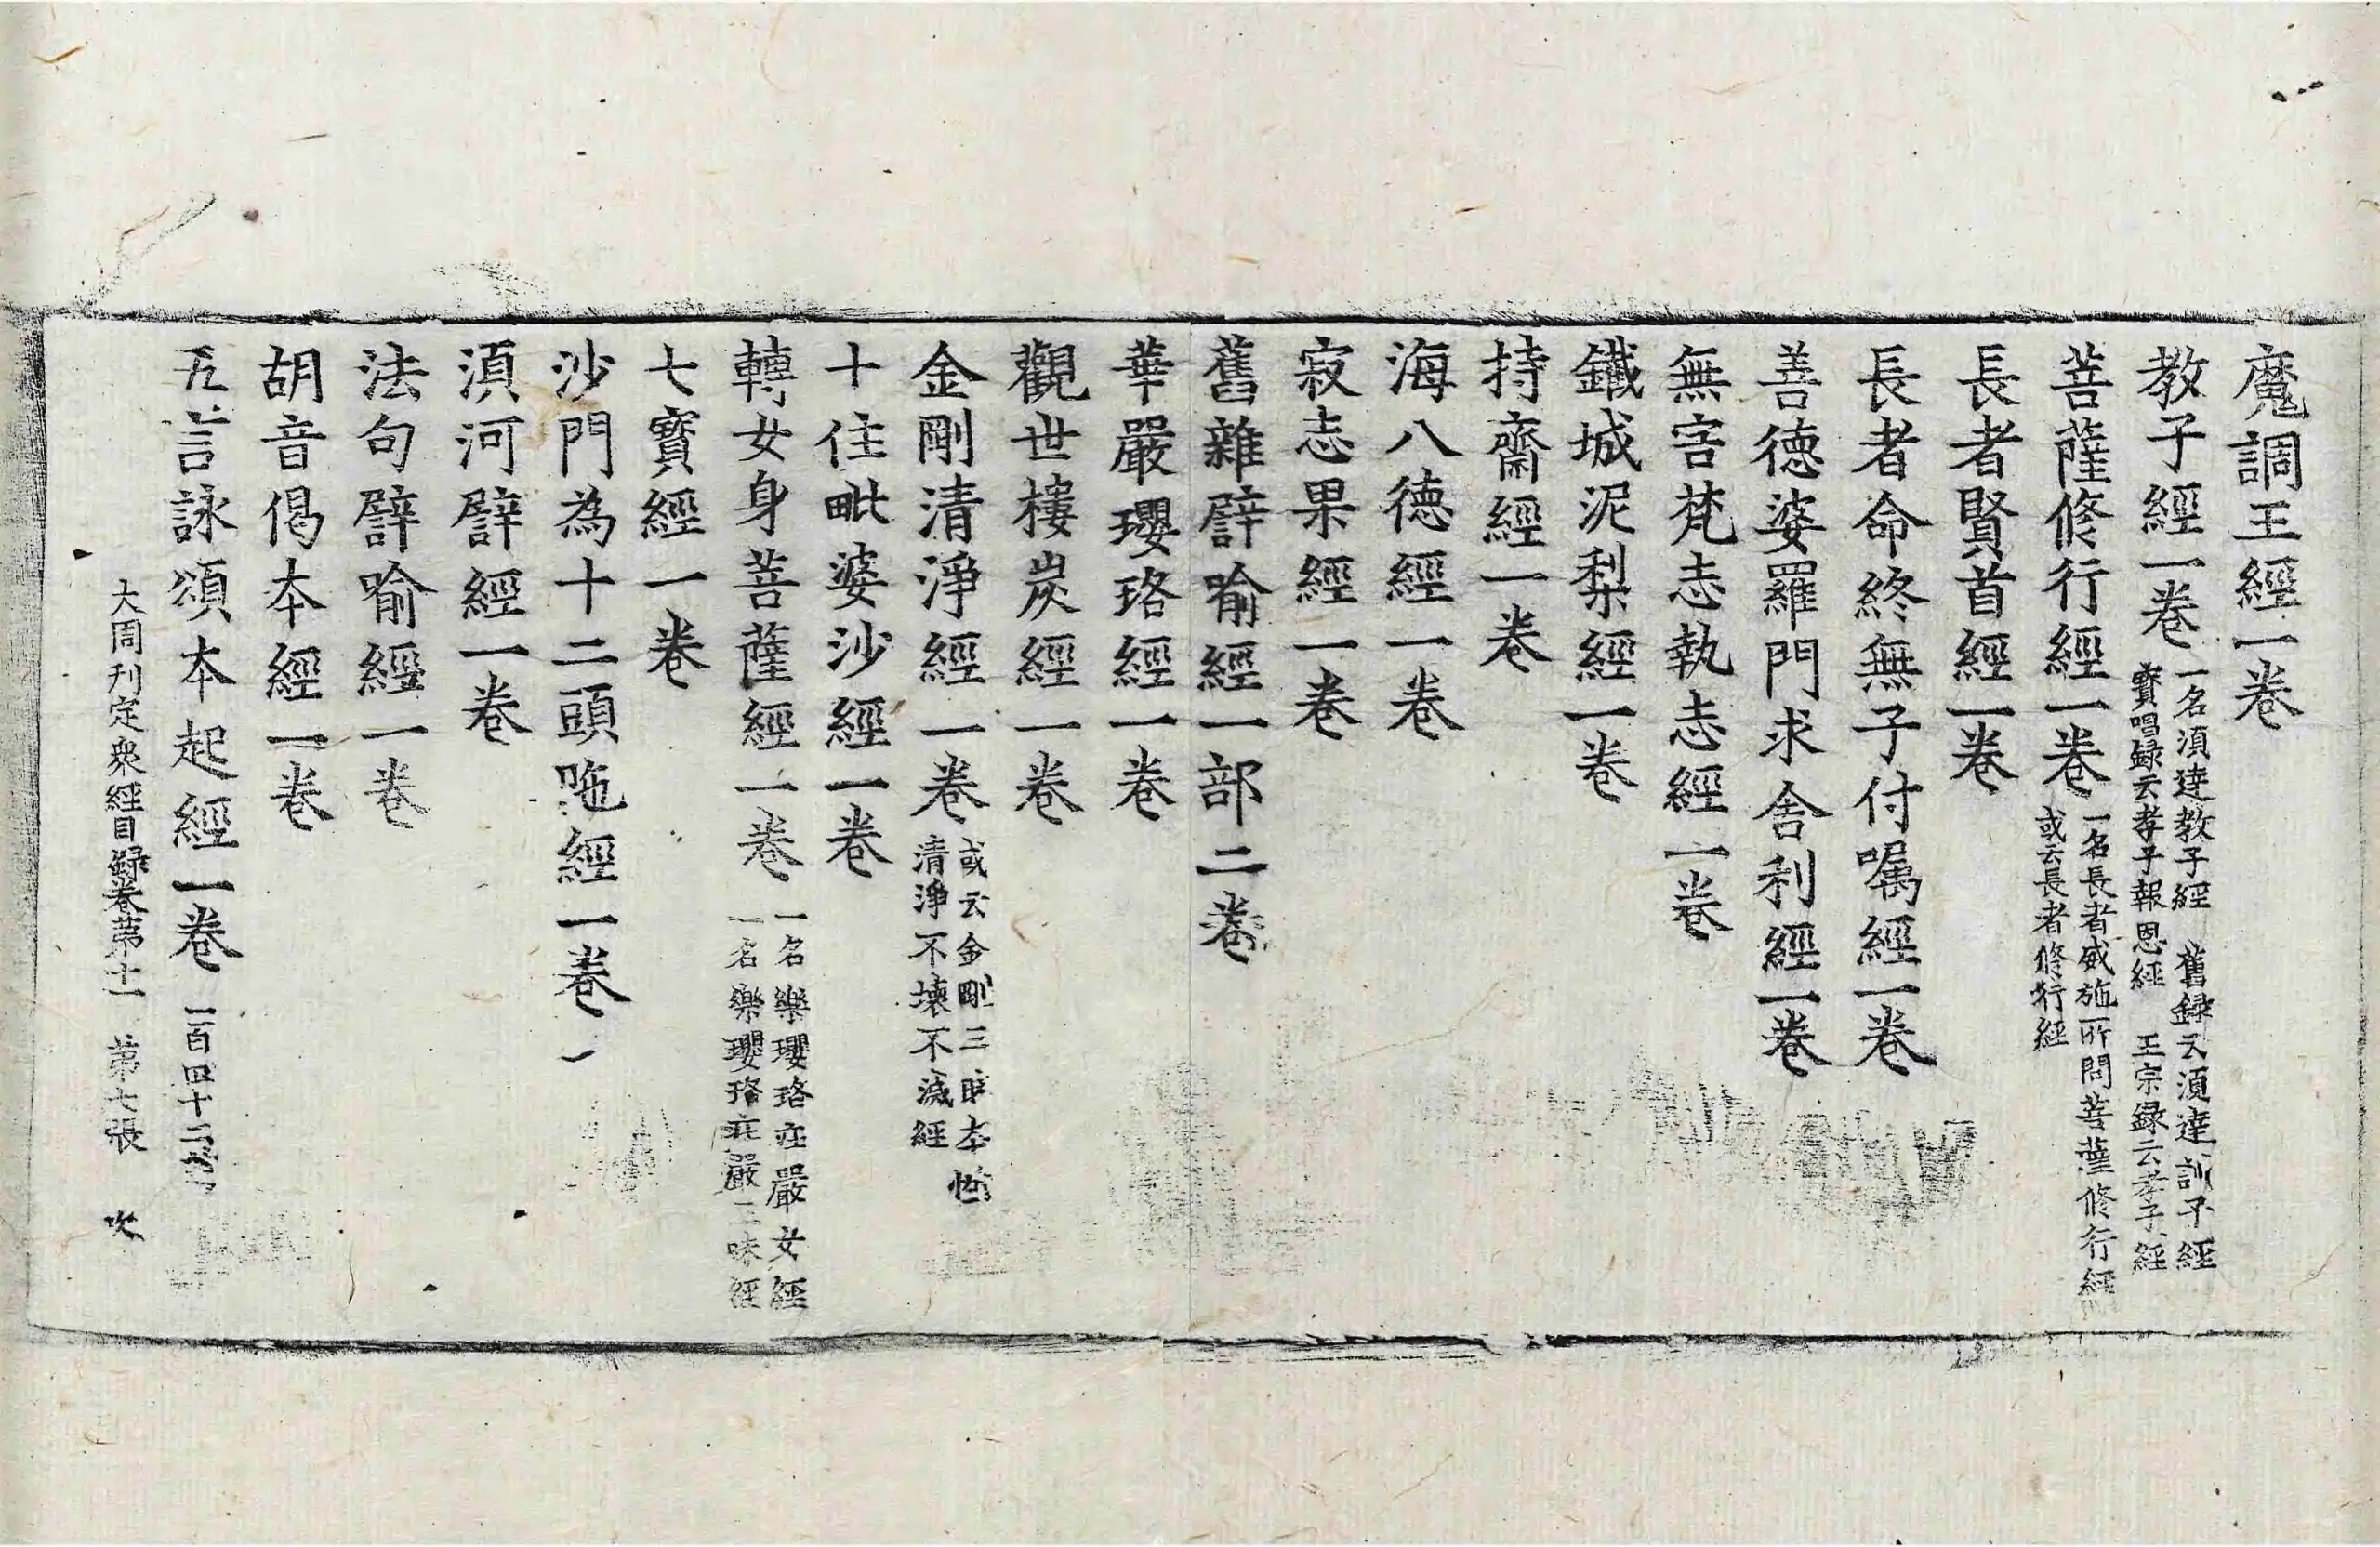 魔調王經一卷
教子經一卷 一名湏達教子經 舊録云湏達訓子經
寶唱録云孝子報恩經 王宗録云孝子經
菩薩修行經一卷 一名長者威施所問菩薩修行經
或云長者修行經
長者賢首經一卷
長者命終無子付嘱經一卷
善德婆羅門求舍利經一卷
無害梵志執志經一卷
鐵城泥犁經一卷
持齋經一卷
海八德經一卷
寂志果經一卷
舊雜譬喻經一部二卷
華嚴瓔珞經一卷
觀世樓炭經一卷
金剛清淨經一卷 或云金剛三昧本性
清淨不壞不滅經
十住毗婆沙經一卷
轉女身菩薩經一卷 一名樂瓔珞莊嚴女經
一名樂瓔珞莊嚴三昧經
七寶經一卷
沙門為十二頭陁經一卷
湏河譬經一卷
法句譬喻經一卷
胡音偈本經一卷
五言詠頌本起經一卷 一百四十二
大周刊定衆經目録卷苐十一 苐七張